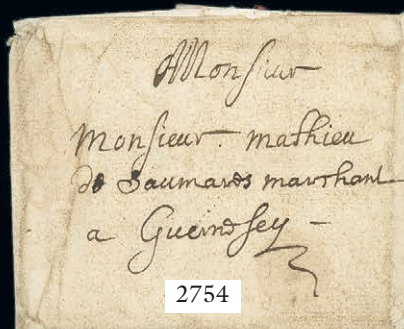 Monsieur
Monsieur. mathieu
de Saumares marchant
a Guerndsey -
2754